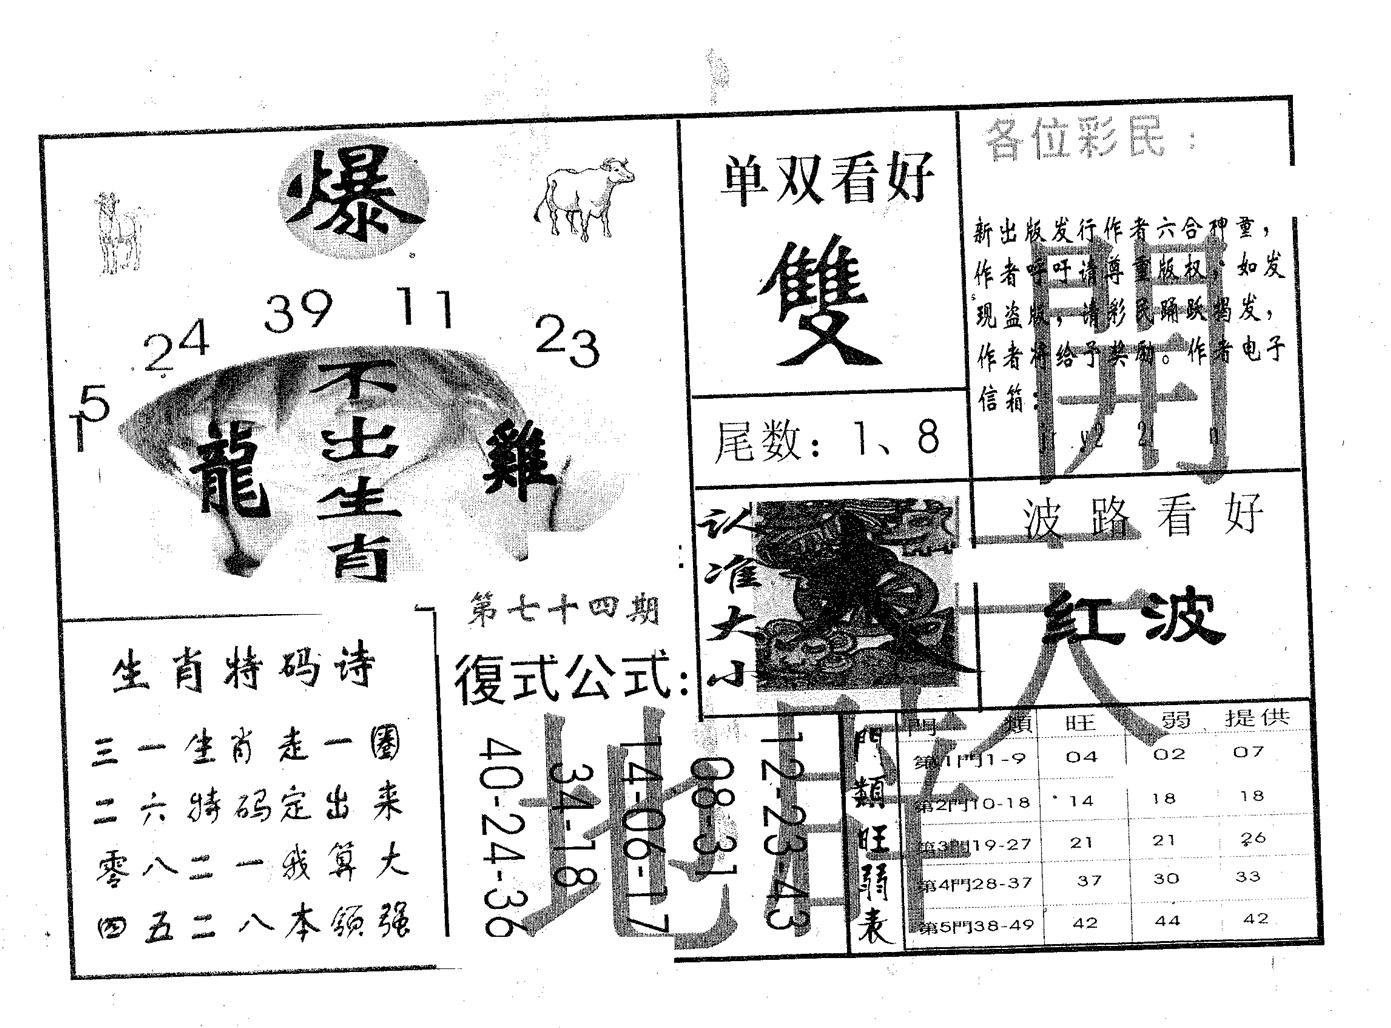 爆
15
24
39
11
23
不出生肖
龍
雞
单双看好
雙
尾数：1、8
各位彩民：
新出版发行作者六合神童，
作者呼吁请尊重版权，如发
现盗版，请彩民踊跃揭发，
作者将给予奖励。作者电子
信箱：
開
波路看好
红波
认准大小
第七十四期
生肖特码诗
三一生肖走一圈
二六特码定出来
零八二一我算大
四五二八本领强
復式公式:
12-23-43
08-31
14-06-17
34-18
40-24-36
地
門類旺弱表
門類 旺 弱 提供
第1門1-9 04 02 07
第2門10-18 14 18 18
第3門19-27 21 21 26
第4門28-37 37 30 33
第5門38-49 42 44 42